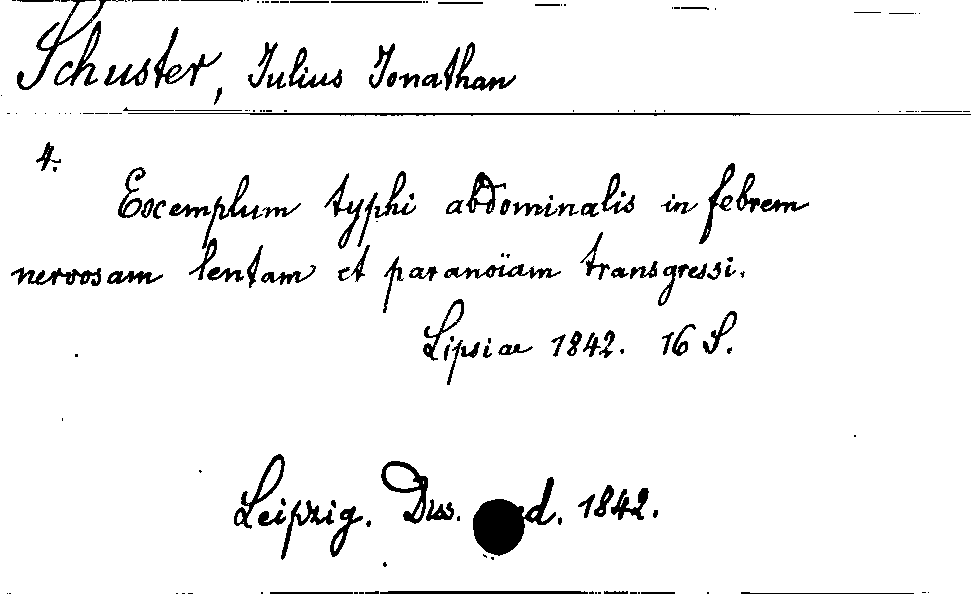 Schuster, Julius Jonathan
4.
Exemplum typhi abdominalis in febrem
nervosam lentam et paranoïam transgressi.
Lipsiae 1842. 16 S.
Leipzig. Diss. 1842.